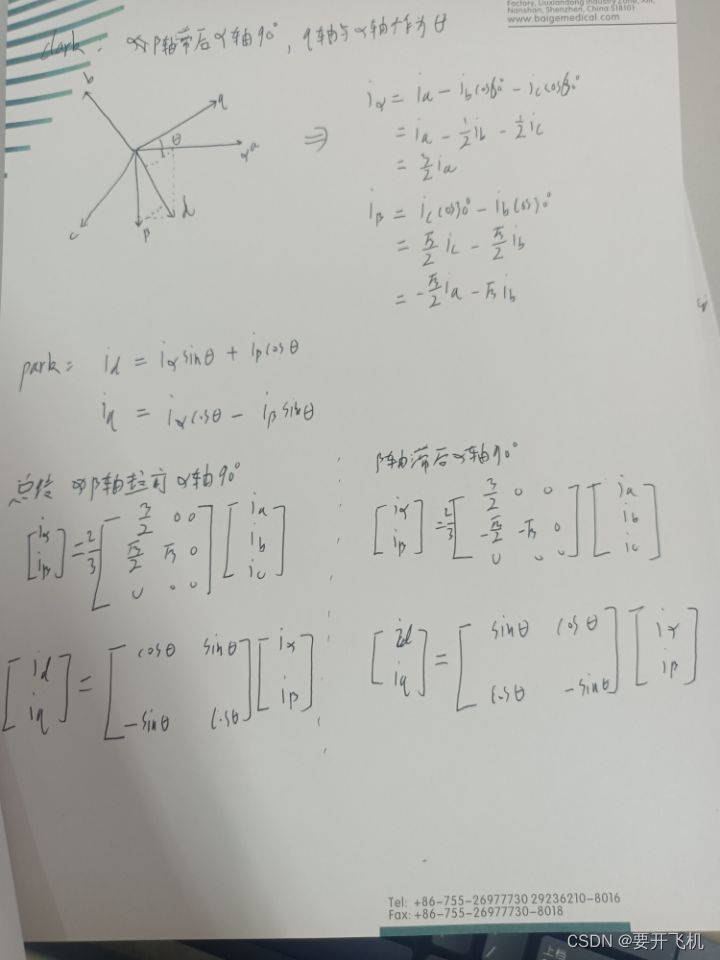 Factory, Liuxiandong Industry Zone, Xili,
Nanshan, Shenzhen, China 518101
www.baigemedical.com
clark: β轴滞后α轴90°, q轴与α轴夹角为θ
b
q
θ
α a
c
β
d
⇒
iα = ia - ib cos60° - ic cos60°
= ia - 1/2 ib - 1/2 ic
= 3/2 ia
iβ = ic cos30° - ib cos30°
= √3/2 ic - √3/2 ib
= -√3/2 ia - √3 ib
park: id = iα sinθ + iβ cosθ
iq = iα cosθ - iβ sinθ
总结 β轴超前α轴90°
[iα iβ] = 2/3 [3/2 0 0; √3/2 √3 0; 0 0 0] [ia ib ic]
[id iq] = [cosθ sinθ; -sinθ cosθ] [iα iβ]
β轴滞后α轴90°
[iα iβ] = 2/3 [3/2 0 0; -√3/2 -√3 0; 0 0 0] [ia ib ic]
[id iq] = [sinθ cosθ; cosθ -sinθ] [iα iβ]
Tel: +86-755-26977730 29236210-8016
Fax: +86-755-26977730-8018
CSDN @要开飞机